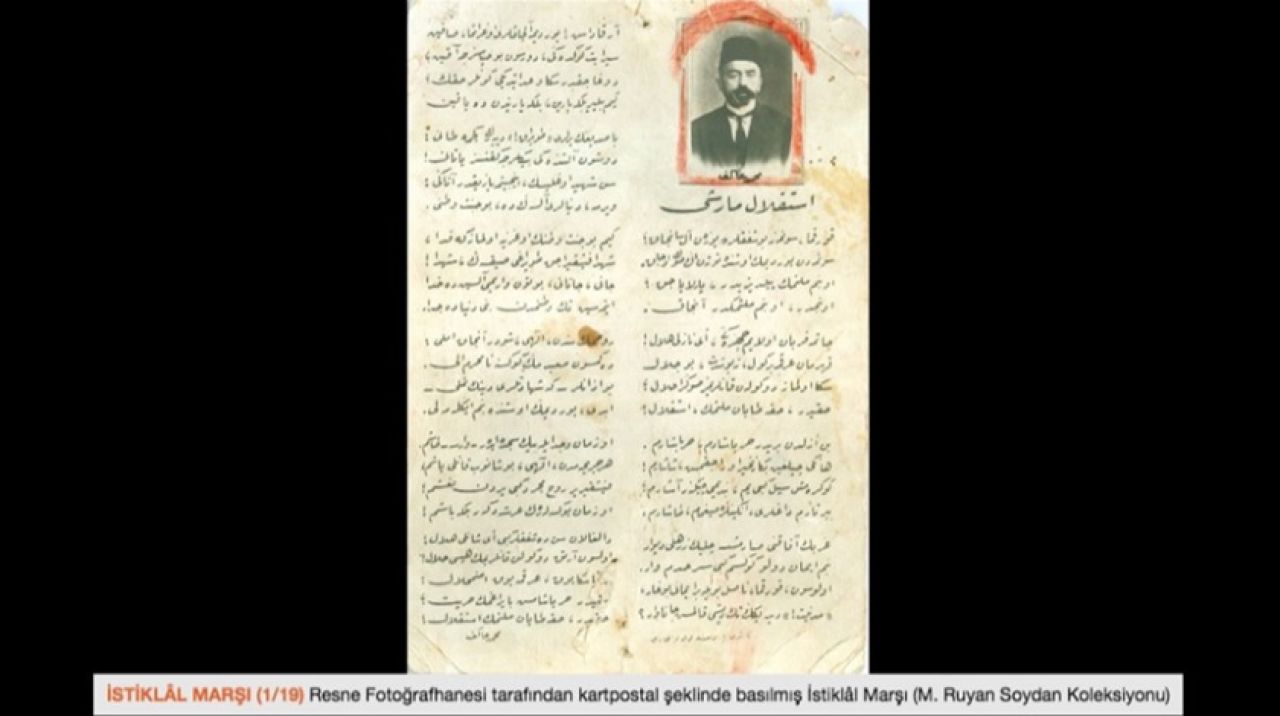 محمد عاكف
استقلال مارشی
قورقما، سونمز بو شفقلرده یوزن آل سانجاق؛
سونمدن یوردیمك اوستنده توتن اك صوڭ اوجاق.
او بنم ملتمك ییلدیزیدر، پارلایاجق؛
او بنمدر، او بنم ملتمكدر آنجاق.
چاتما قربان اولایم چهره‌ڭی، ای نازلی هلال!
قهرمان عرقمه بر گول، نه بو شدت، بو جلال؟
سڭا اولماز دوكولن قانلریمز صوڭرا حلال؛
حقیدر، حقه طاپان ملتمك، استقلال!
بن ازلدن بریدر حر یاشادم، حر یاشارم.
هانگی چیلغین بڭا زنجیر اوراجقمش، شاشارم!
كوكره‌مش سیل گبی‌یم، بندیمی چیكنر، آشارم؛
ییرتارم داغلری، انگینلره صیغمام، طاشارم.
غربك آفاقنی صارمشسه چلیك زرهلی دیوار
بنم ایمان دولو كوكسم گبی سرحدم وار.
اولوسون، قورقما، ناصل بویله بر ایمانی بوغار،
«مدنیت!» دیدیكك تك دیشی قالمش جاناوار؟
آرقاداش! یوردیمه آلچاقلری اوغراتما، صاقین
سپر ایت گوكده‌كی، دورسون بو حیاسزجه آقین؛
دوغاجقدر سڭا وعد ایتدیكی گونلر حقك؛
كیم بیلیر بلكه یارین، بلكه یاریندن ده یاقین
باصدیغك یرلری «طوپراق!» دییه‌رك گچمه، طانی!
دوشون آلتنده‌كی بیڭلرجه كفنسز یاتانی!
سن شهید اوغلیسك، اینجیتمه، یازیقدر، آتاڭی؛
ویرمه، دنیالری آلسه‌ڭ ده، بو جنت وطنی.
كیم بو جنت وطنك اوغرینه اولماز كه فدا،
شهدا فیشقیراجق طوپراغی صیقسه‌ڭ، شهدا!
جانی، جانانی، بوتون واریمی آلسین ده خدا
ایتمه‌سین تك وطنمدن بنی دنیاده جدا.
روحمك سندن، الهی، شودر آنجاق املی؛
دگمسون معبدمك كوكسنه نامحرم الی.
بو اذانلر ــ كه شهادتلری دینك تملی ــ
ابدی، یوردیمك اوستنده بنم ایڭله‌ملی.
او زمان وجد ایله بیك سجده ایدر ــ وارسه ــ طاشم
هر جریحمدن، الهی، بوشانوب قانلی یاشم،
فیشقیریر روح مجرد گبی یردن نعشم!
او زمان یوكسله‌رك عرشه دگر بلكه باشم!
دالغالان سن ده شفقلر گبی ای شانلی هلال!
اولسون آرتق دوكولن قانلریمك هپسی حلال؛
ابدیاً سڭا یوق، عرقمه یوق اضمحلال؛
حقیدر حر یاشامش بایراغمك حریت؛
حقیدر، حقه طاپان ملتمك استقلال!
محمد عاكف
İSTİKLÂL MARŞI (1/19) Resne Fotoğrafhanesi tarafından kartpostal şeklinde basılmış İstiklâl Marşı (M. Ruyan Soydan Koleksiyonu)